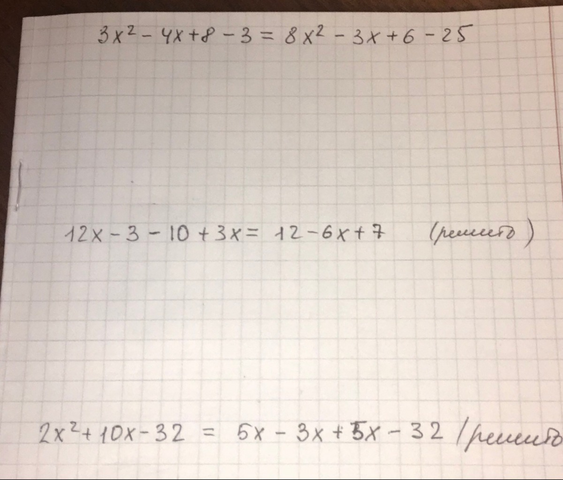 3x² - 4x + 8 - 3 = 8x² - 3x + 6 - 25
12x - 3 - 10 + 3x = 12 - 6x + 7 (решить)
2x² + 10x - 32 = 5x - 3x + 5x - 32 (решить